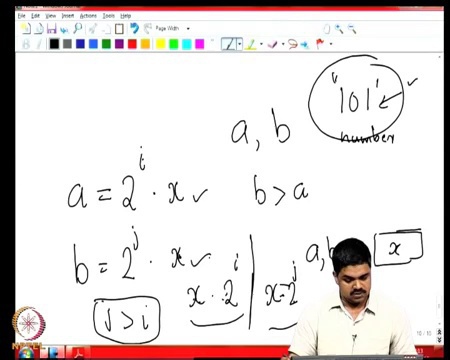 File Edit View Insert Actions Tools Help
Page Width
"101"
number
a, b
a = 2^i · x ✓ b > a
b = 2^j · x ✓
a, b x
j > i x · 2^i | x = 2^j